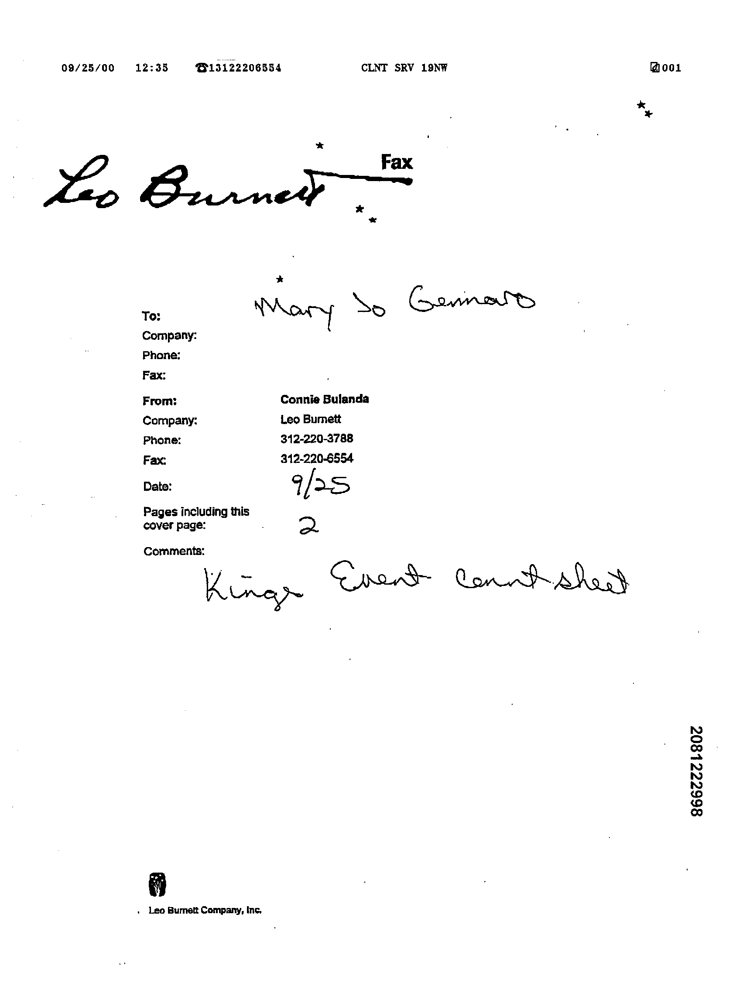 09/25/00 12:35 ☎13122206554 CLNT SRV 19NW 001
Fax
Leo Burnett
To: Mary Jo Gennaro
Company:
Phone:
Fax:
From: Connie Bulanda
Company: Leo Burnett
Phone: 312-220-3788
Fax: 312-220-6554
Date: 9/25
Pages including this
cover page: 2
Comments:
Kings Event count sheet
2081222998
Leo Burnett Company, Inc.